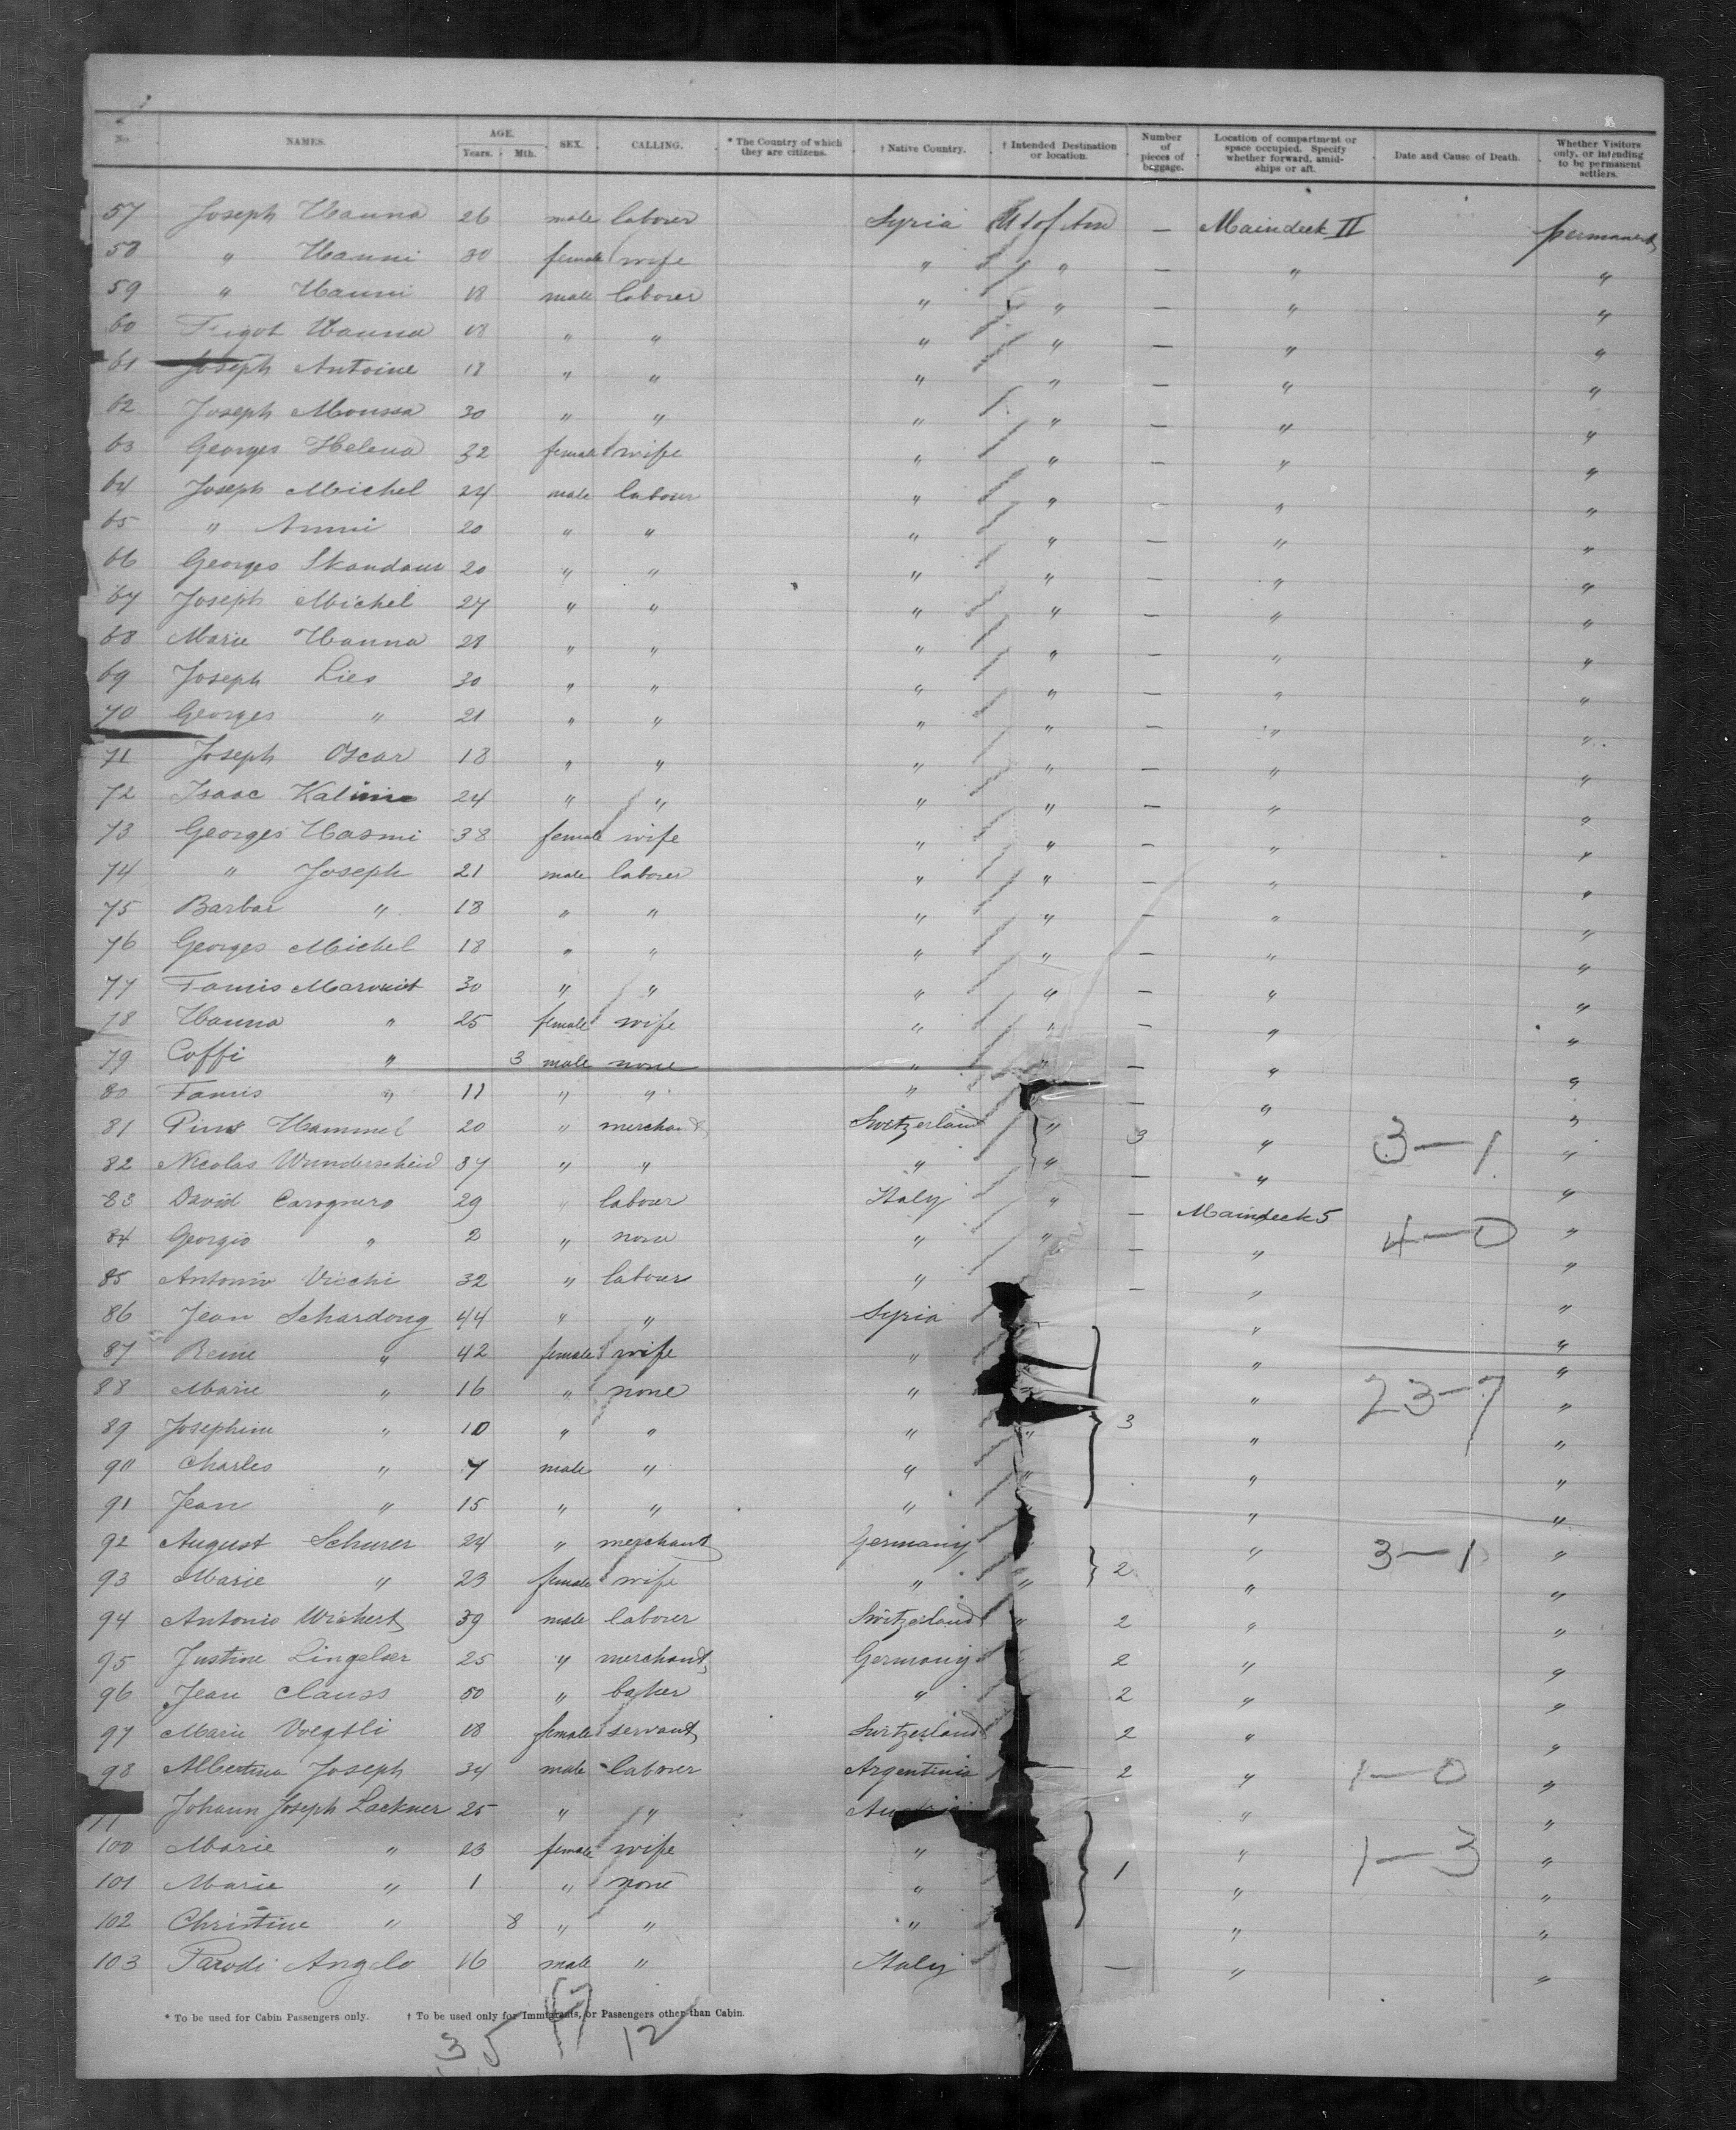 No. NAMES. AGE. Years. Mth. SEX. CALLING. * The Country of which they are citizens. † Native Country. † Intended Destination or location. Number of pieces of baggage. Location of compartment or space occupied. Specify whether forward, amidships or aft. Date and Cause of Death. Whether Visitors only, or intending to be permanent settlers.
57 Joseph Hanna 26 male laborer Syria U S of Am — Maindeck II permanent
58 " Hanni 30 female wife " " — " "
59 " Hanni 18 male laborer " " — " "
60 Hanna 18 " " " " — " "
61 Joseph Antoine 18 " " " " — " "
62 Joseph Moussa 30 " " " " — " "
63 Georges Helena 32 female wife " " — " "
64 Joseph Michel 24 male labour " " — " "
65 " Anni 20 " " " " — " "
66 Georges Skandaur 20 " " " " — " "
67 Joseph Michel 27 " " " " — " "
68 Marie Hanna 28 " " " " — " "
69 Joseph Lies 30 " " " " — " "
70 Georges " 21 " " " " — " "
71 Joseph Oscar 18 " " " " — " "
72 Isaac 24 " " " " — " "
73 Georges Hasmi 38 female wife " " — " "
74 " Joseph 21 male laborer " " — " "
75 Barbar " 18 " " " " — " "
76 Georges Michel 18 " " " " — " "
77 Famis 30 " " " " — " "
78 Hanna " 25 female wife " " — " "
79 Coffi " 3 male none " " — " "
80 Famis " 11 " " " — " "
81 Pius Hammel 20 " merchant Switzerland " 3 " 3—1 "
82 Nicolas Wunderscheid 37 " " " " — " "
83 David Carognero 29 " labour Italy " — Maindeck 5 "
84 Georgio " 2 " none " " — " 4—0 "
85 Antonio Vicchi 32 " labour " — " "
86 Jean Schardong 44 " " Syria " "
87 Reine " 42 female wife " " "
88 Marie " 16 " none " " " 23—7 "
89 Josephine " 10 " " " " 3 " "
90 Charles " 7 male " " " " "
91 Jean " 15 " " " " "
92 August Schurer 24 " merchant Germany " 3—1 "
93 Marie " 23 female wife " " 2 " "
94 Antonio Wickert 39 male laborer Switzerland " 2 " "
95 Justine Lingelser 25 " merchant Germany 2 " "
96 Jean Clauss 50 " baker " 2 " "
97 Marie Voegtli 18 female servant Switzerland 2 " "
98 Albertina Joseph 34 male laborer Argentinia 2 " 1—0 "
Johann Joseph Lackner 25 " " " "
100 Marie " 23 female wife " " 1—3 "
101 Marie " 1 " none " 1 " "
102 Christine " 8 " " " " "
103 Parodi Angelo 16 male " Italy — " "
* To be used for Cabin Passengers only. † To be used only for Immigrants, or Passengers other than Cabin.
35 17 12